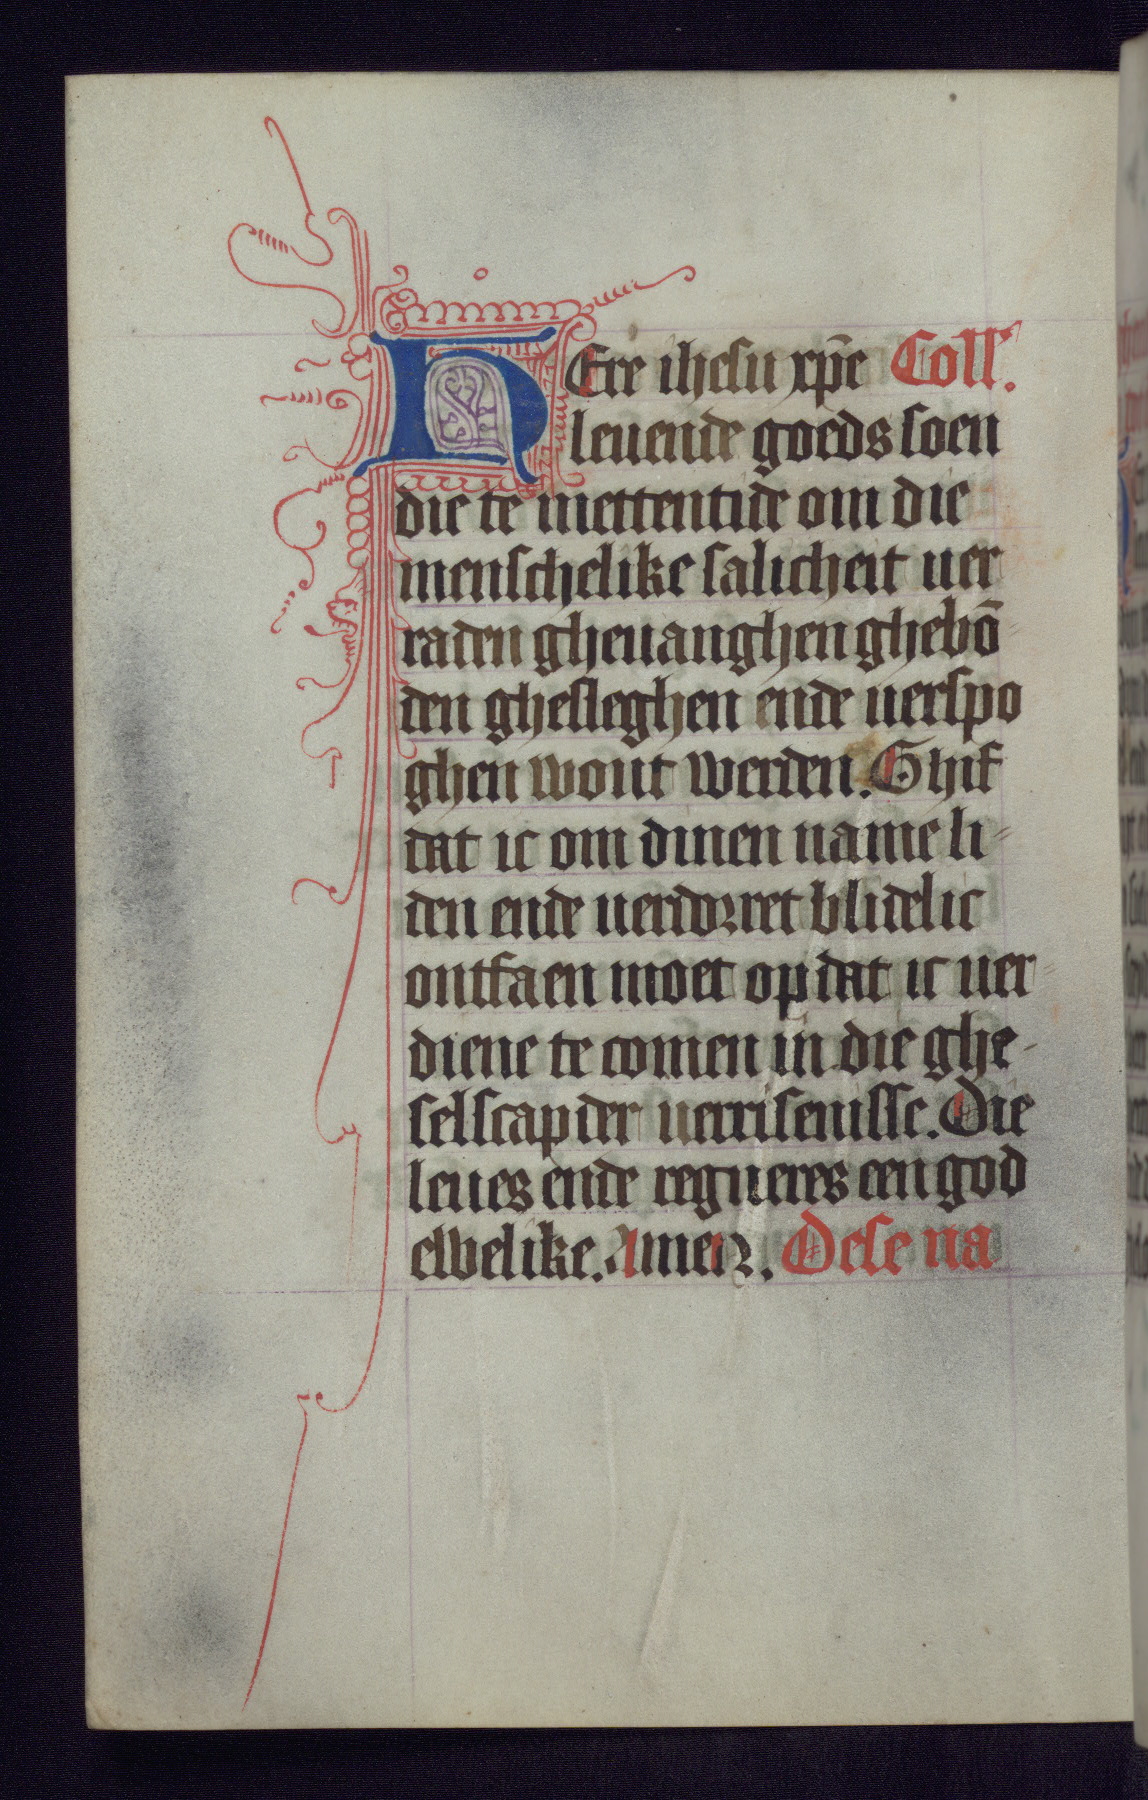 HEre ihesu xp̄e Coll'.
leuende goeds soen
die te mettentide om die
menschelike salicheit uer
raden gheuanghen ghebō
den ghesleghen ende uerspo
ghen wout werden. Ghif
dat ic om dinen name li-
den ende uerdorret blidelic
ontfaen moet op dat ic uer-
diene te comen in die ghe-
selscap der uerrisenisse. Die
leues ende regneres een god
ewelike. Amen. Dese na